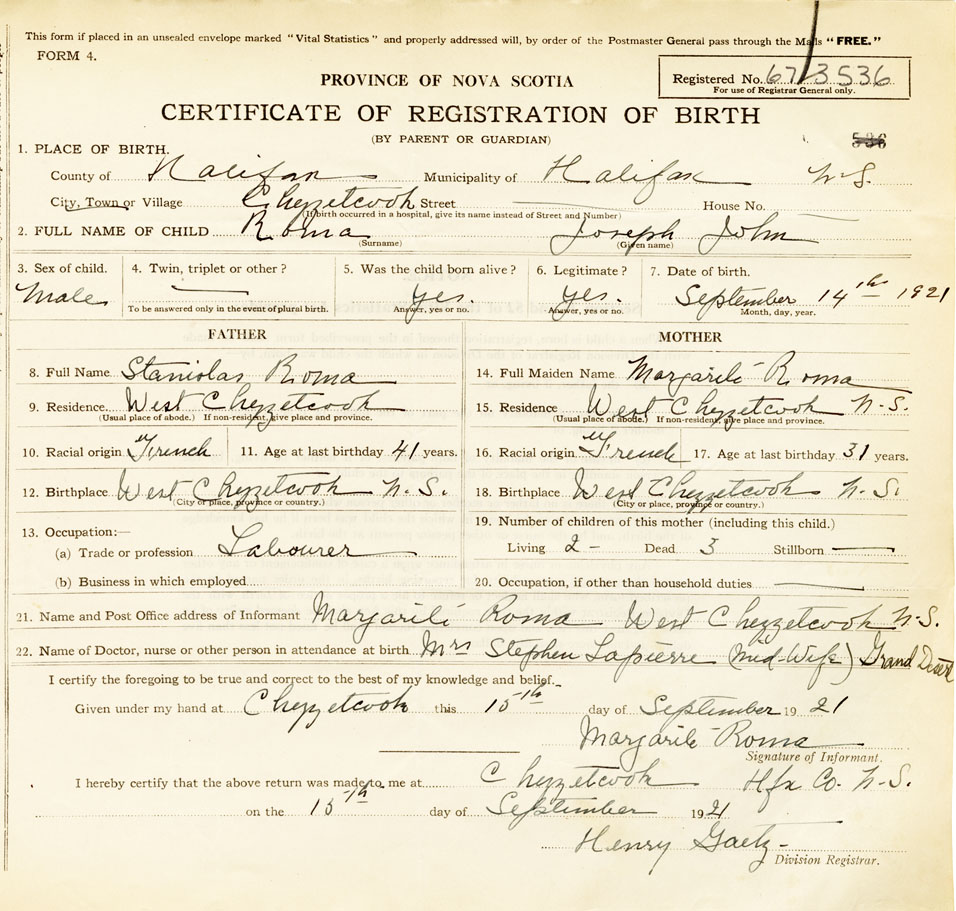 This form if placed in an unsealed envelope marked "Vital Statistics" and properly addressed will, by order of the Postmaster General pass through the Mails "FREE."
FORM 4.
PROVINCE OF NOVA SCOTIA
Registered No. 67/3536
For use of Registrar General only.
CERTIFICATE OF REGISTRATION OF BIRTH
(BY PARENT OR GUARDIAN)
536
1. PLACE OF BIRTH.
County of Halifax Municipality of Halifax N.S.
City, Town or Village Chezzetcook Street House No.
(If birth occurred in a hospital, give its name instead of Street and Number)
2. FULL NAME OF CHILD Roma Joseph John
(Surname) (Given name)
3. Sex of child. 4. Twin, triplet or other? 5. Was the child born alive? 6. Legitimate? 7. Date of birth.
Male yes. yes. September 14th 1921
To be answered only in the event of plural birth. Answer, yes or no. Answer, yes or no. Month, day, year.
FATHER MOTHER
8. Full Name Stanislas Roma 14. Full Maiden Name Margarité Roma
9. Residence. West Chezzetcook 15. Residence West Chezzetcook N.S.
(Usual place of abode.) If non-resident, give place and province. (Usual place of abode.) If non-resident, give place and province.
10. Racial origin French 11. Age at last birthday 41 years. 16. Racial origin French 17. Age at last birthday 31 years.
12. Birthplace West Chezzetcook N.S. 18. Birthplace West Chezzetcook N.S.
(City or place, province or country.) (City or place, province or country.)
13. Occupation:— 19. Number of children of this mother (including this child.)
(a) Trade or profession Labourer Living 2 - Dead 3 Stillborn
(b) Business in which employed 20. Occupation, if other than household duties
21. Name and Post Office address of Informant Margarité Roma West Chezzetcook N.S.
22. Name of Doctor, nurse or other person in attendance at birth Mrs Stephen Lapierre (Mid-Wife) Grand Desert
I certify the foregoing to be true and correct to the best of my knowledge and belief.
Given under my hand at Chezzetcook this 15th day of September 1921
Margarité Roma
Signature of Informant.
I hereby certify that the above return was made to me at Chezzetcook Hfx Co. N.S.
on the 15th day of September 1921
Henry Gaetz
Division Registrar.